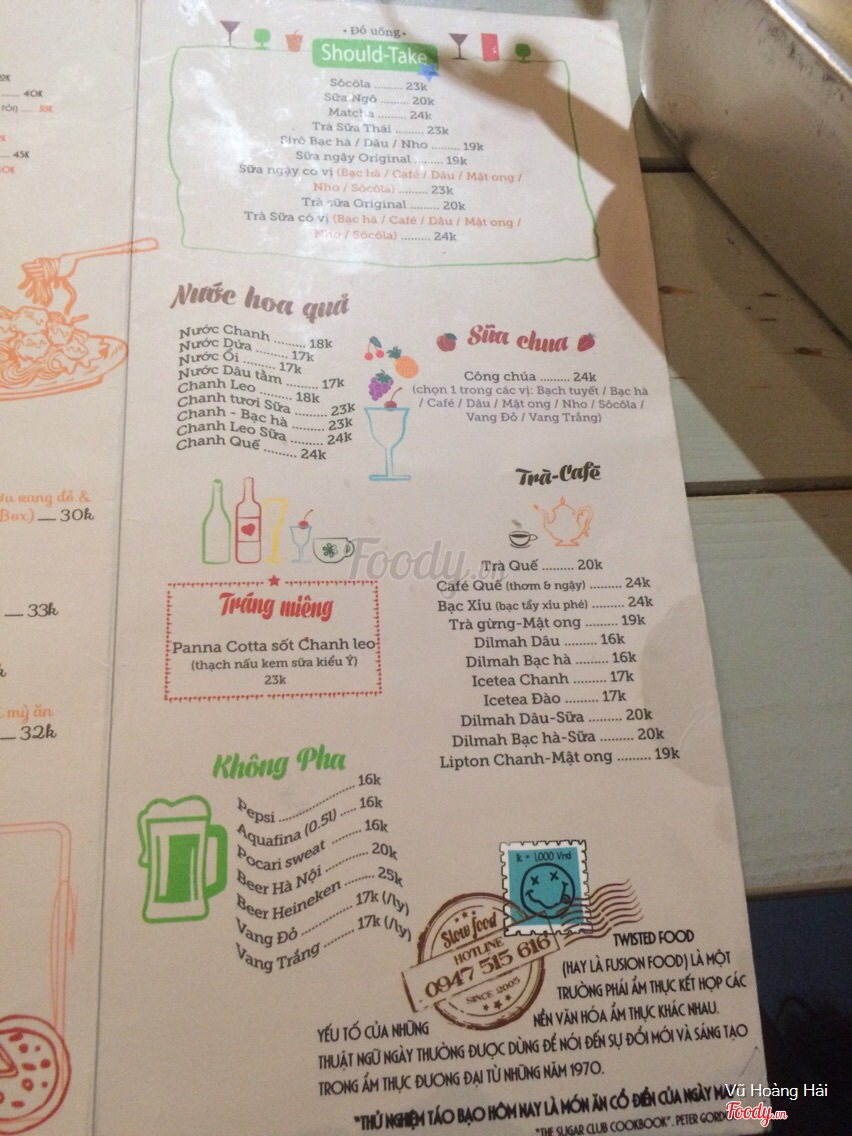 • Đồ uống •
Should-Take
Sôcôla ......... 23k
Sữa Ngô ......... 20k
Matcha ......... 24k
Trà Sữa Thái ......... 23k
Sirô Bạc hà / Dâu / Nho ......... 19k
Sữa ngậy Original ......... 19k
Sữa ngậy có vị (Bạc hà / Café / Dâu / Mật ong /
Nho / Sôcôla) ......... 23k
Trà sữa Original ......... 20k
Trà Sữa có vị (Bạc hà / Café / Dâu / Mật ong /
Nho / Sôcôla) ......... 24k
40K
38K
45K
Nước hoa quả
Nước Chanh ......... 18k
Nước Dứa ......... 17k
Nước Ổi ......... 17k
Nước Dâu tằm ......... 17k
Chanh Leo ......... 18k
Chanh tươi Sữa ......... 23k
Chanh - Bạc hà ......... 23k
Chanh Leo Sữa ......... 24k
Chanh Quế ......... 24k
Sữa chua
Công chúa ......... 24k
(chọn 1 trong các vị: Bạch tuyết / Bạc hà
/ Café / Dâu / Mật ong / Nho / Sôcôla /
Vang Đỏ / Vang Trắng)
Trà-Café
Trà Quế ......... 20k
Café Quế (thơm & ngậy) ......... 24k
Bạc Xỉu (bạc tẩy xỉu phé) ......... 24k
Trà gừng-Mật ong ......... 19k
Dilmah Dâu ......... 16k
Dilmah Bạc hà ......... 16k
Icetea Chanh ......... 17k
Icetea Đào ......... 17k
Dilmah Dâu-Sữa ......... 20k
Dilmah Bạc hà-Sữa ......... 20k
Lipton Chanh-Mật ong ......... 19k
vang đỏ &
Box) — 30k
— 33k
mỳ ăn
— 32k
Foody.vn
Tráng miệng
Panna Cotta sốt Chanh leo
(thạch nấu kem sữa kiểu Ý)
23k
Không Pha
Pepsi ......... 16k
Aquafina (0.5l) .... 16k
Pocari sweat ......... 16k
Beer Hà Nội ......... 20k
Beer Heineken ......... 25k
Vang Đỏ ......... 17k (/ly)
Vang Trắng ......... 17k (/ly)
k = 1,000 Vnd
Slow food
HOTLINE
0947 515 616
SINCE 2005
TWISTED FOOD
(HAY LÀ FUSION FOOD) LÀ MỘT
TRƯỜNG PHÁI ẨM THỰC KẾT HỢP CÁC
YẾU TỐ CỦA NHỮNG NỀN VĂN HÓA ẨM THỰC KHÁC NHAU.
THUẬT NGỮ NGÀY THƯỜNG ĐƯỢC DÙNG ĐỂ NÓI ĐẾN SỰ ĐỔI MỚI VÀ SÁNG TẠO
TRONG ẨM THỰC ĐƯƠNG ĐẠI TỪ NHỮNG NĂM 1970.
"THỬ NGHIỆM TÁO BẠO HÔM NAY LÀ MÓN ĂN CỔ ĐIỂN CỦA NGÀY
"THE SUGAR CLUB COOKBOOK". PETER
Vũ Hoàng Hải
Foody.vn